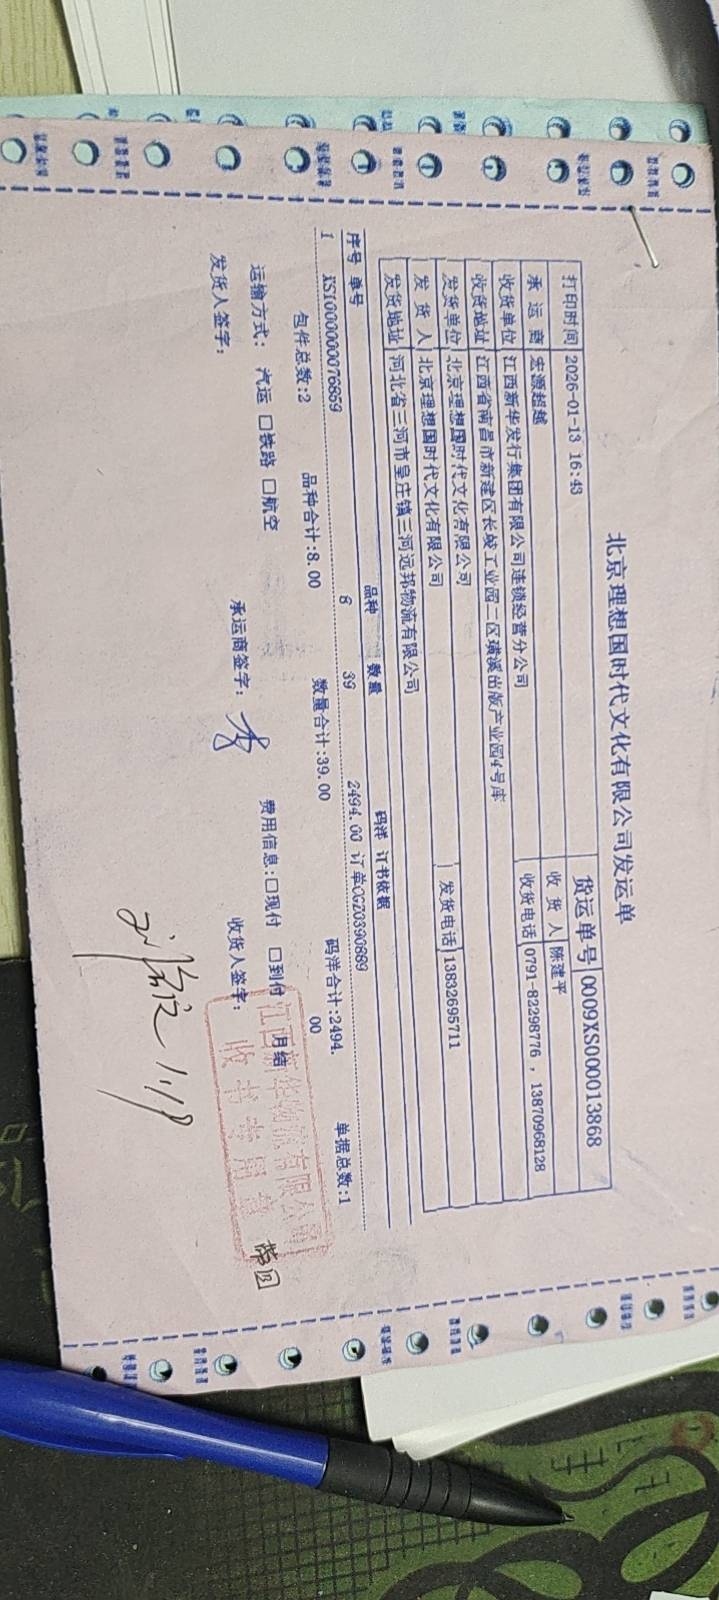 北京理想国时代文化有限公司发运单
货运单号 0009XS000013868
打印时间 2026-01-13 16:43
收 货 人 陈建平
承 运 商 宏源超越
收货电话 0791-82298776 , 13870968128
收货单位 江西新华发行集团有限公司连锁经营分公司
收货地址 江西省南昌市新建区长堎工业园二区璜溪出版产业园4号库
发货单位 北京理想国时代文化有限公司
发货电话 13832695711
发 货 人 北京理想国时代文化有限公司
发货地址 河北省三河市皇庄镇三河远邦物流有限公司
序号 单号 品种 数量 码洋 订书依据
1 XS1000000076859 8 39 2494.00 订单CGZ0390889
包件总数:2 品种合计:8.00 数量合计:39.00 码洋合计:2494.00 单据总数:1
运输方式: 汽运 □铁路 □航空 费用信息:□现付 □到付 月结
发货人签字: 承运商签字: 收货人签字:
江西新华物流有限公司
收书专用章